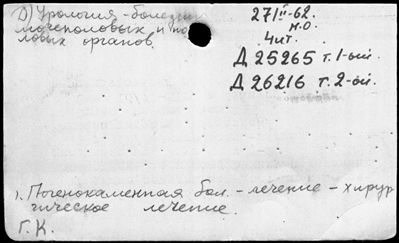 Д) Урология - болезни
мочеполовых и по
ловых органов
27/II-62.
м.о.
4 чит.
Д 25265 т. 1-ый
Д 26216 т. 2-ой.
1. Поченокаменная бол. - лечение - хирур
гическое лечение.
Г.К.